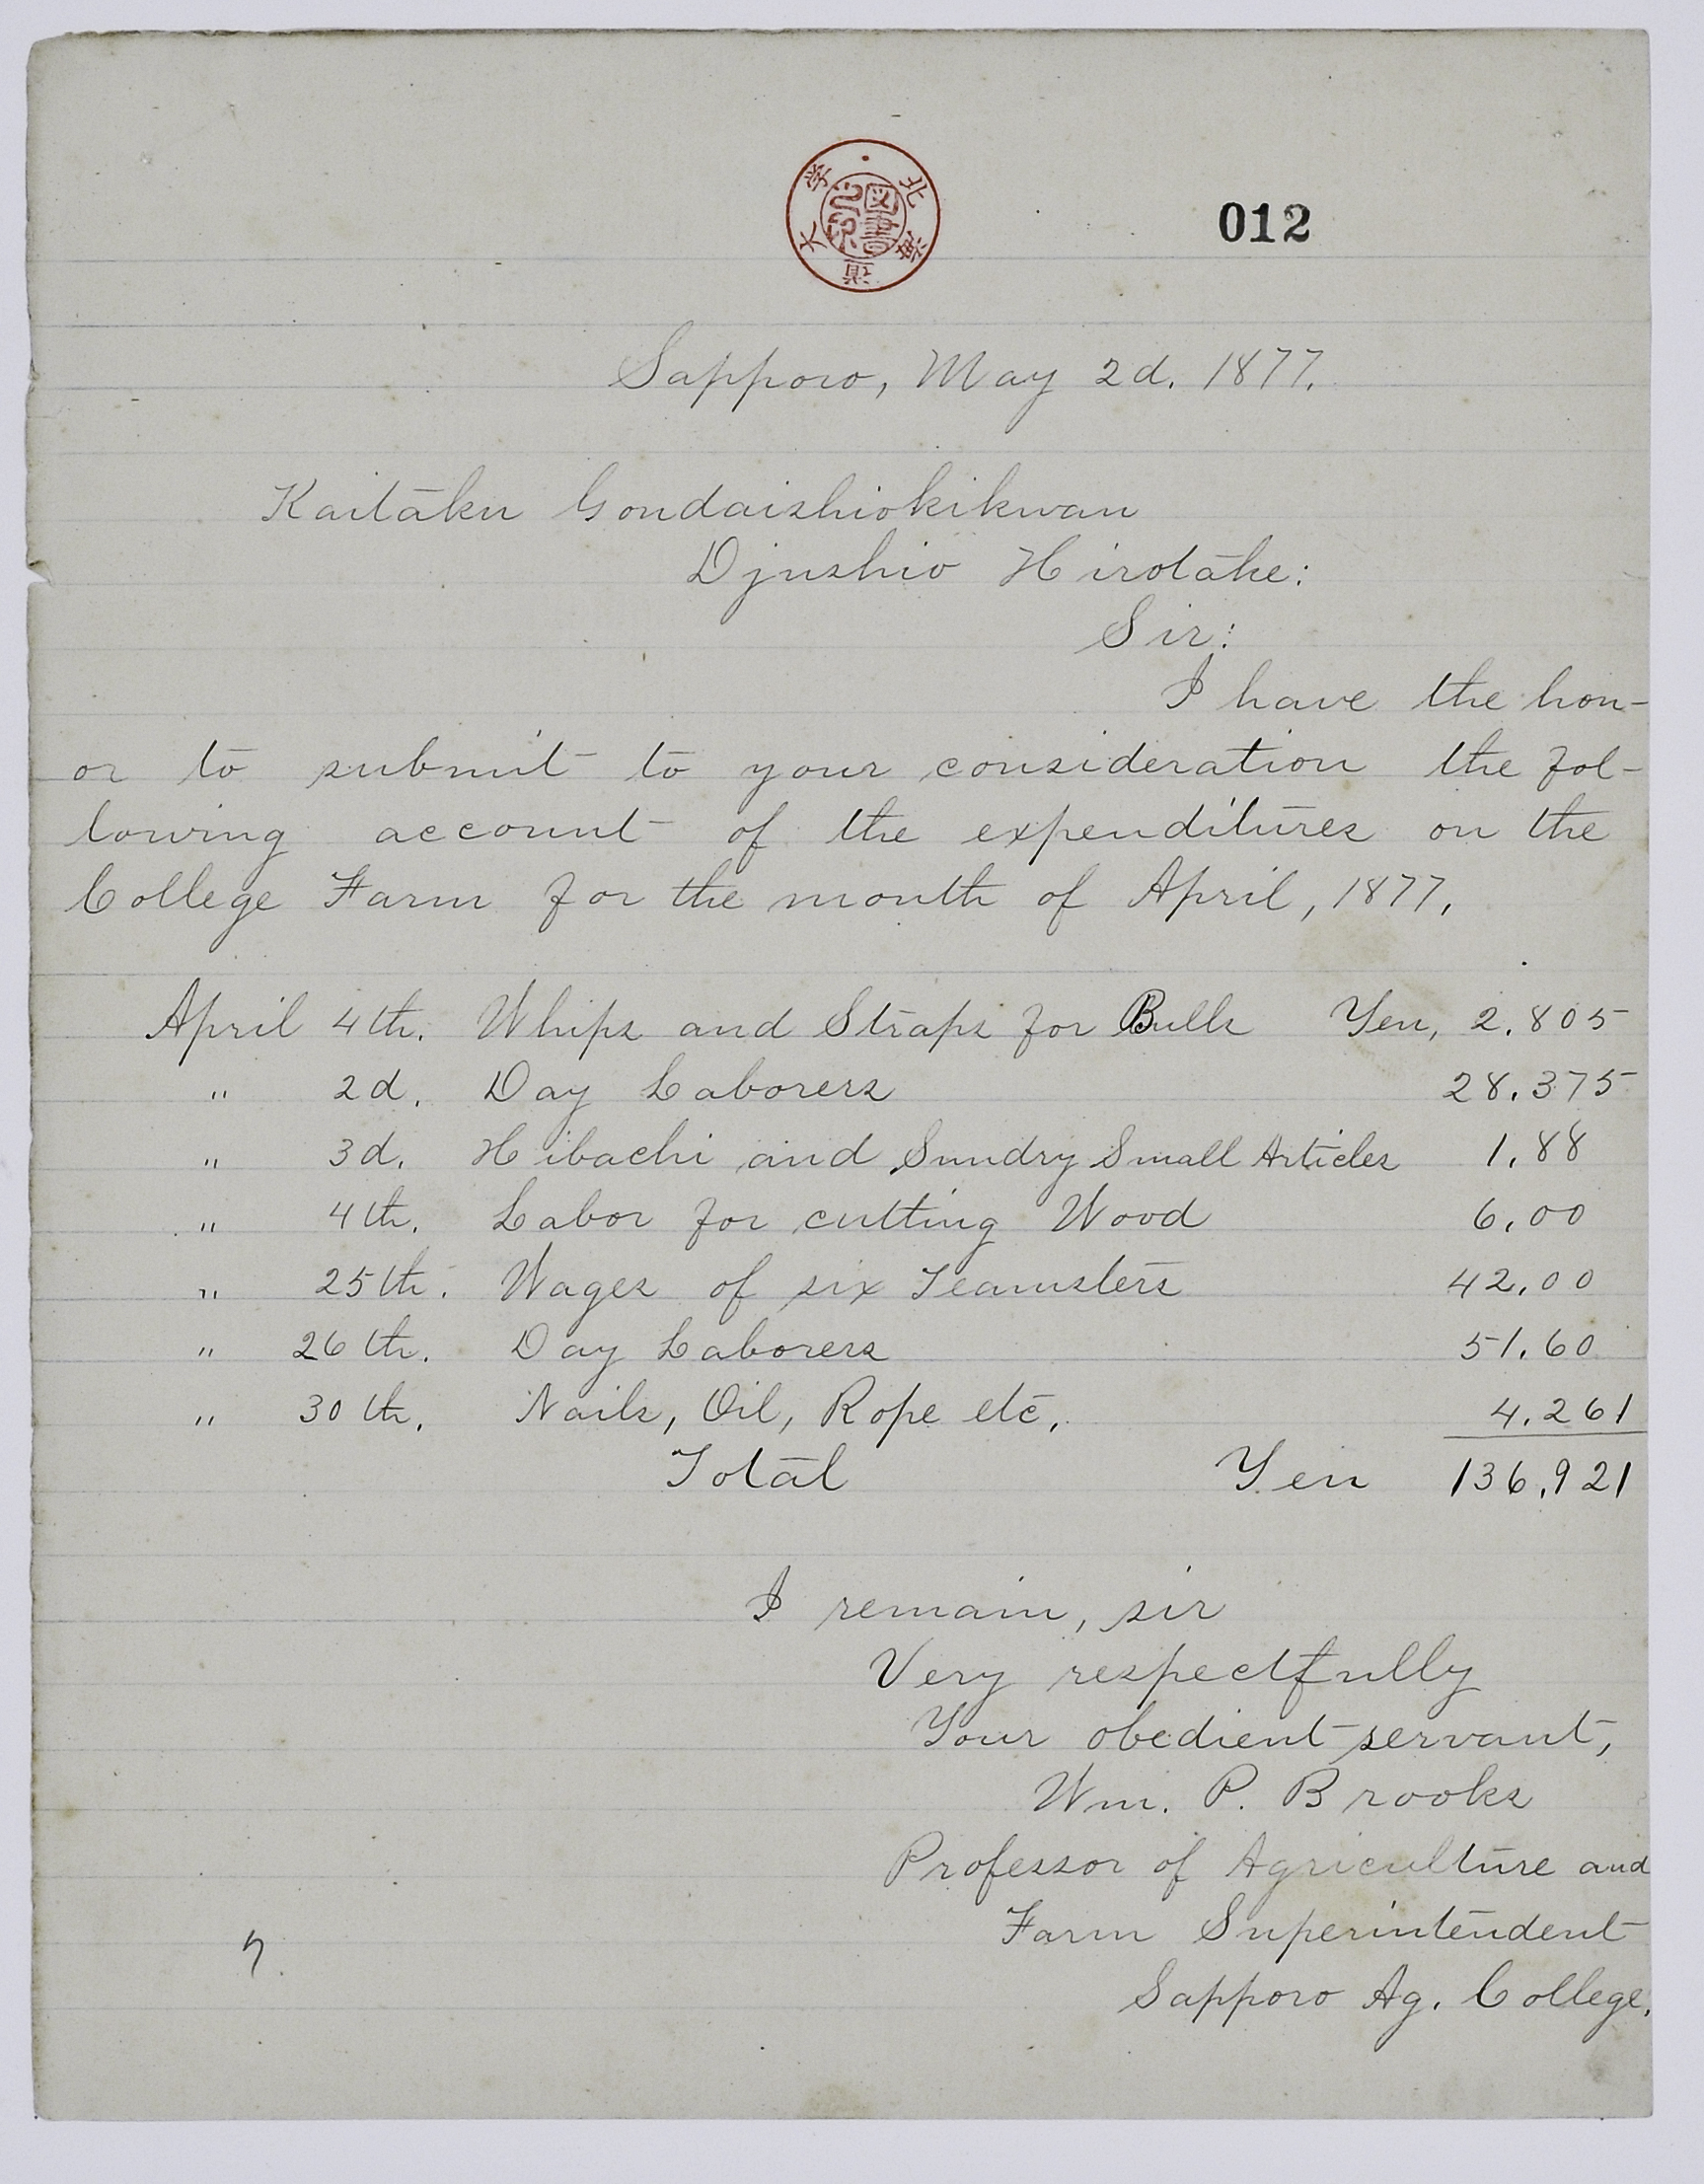 北海道大学
図書之印
012
Sapporo, May 2d. 1877.
Kaitaku Gondaishiokikwan
Djushio Hirotake:
Sir:
I have the hon-
or to submit to your consideration the fol-
lowing account of the expenditures on the
College Farm for the month of April, 1877.
April 4th. Whips and Straps for Bulls Yen, 2.805
" 2d. Day Laborers 28.375
" 3d. Hibachi and Sundry Small Articles 1.88
" 4th. Labor for cutting Wood 6.00
" 25th. Wages of six Teamsters 42.00
" 26th. Day Laborers 51.60
" 30th. Nails, Oil, Rope etc. 4.261
Total Yen 136.921
I remain, sir
Very respectfully
Your obedient servant,
Wm. P. Brooks
Professor of Agriculture and
Farm Superintendent
Sapporo Ag. College.